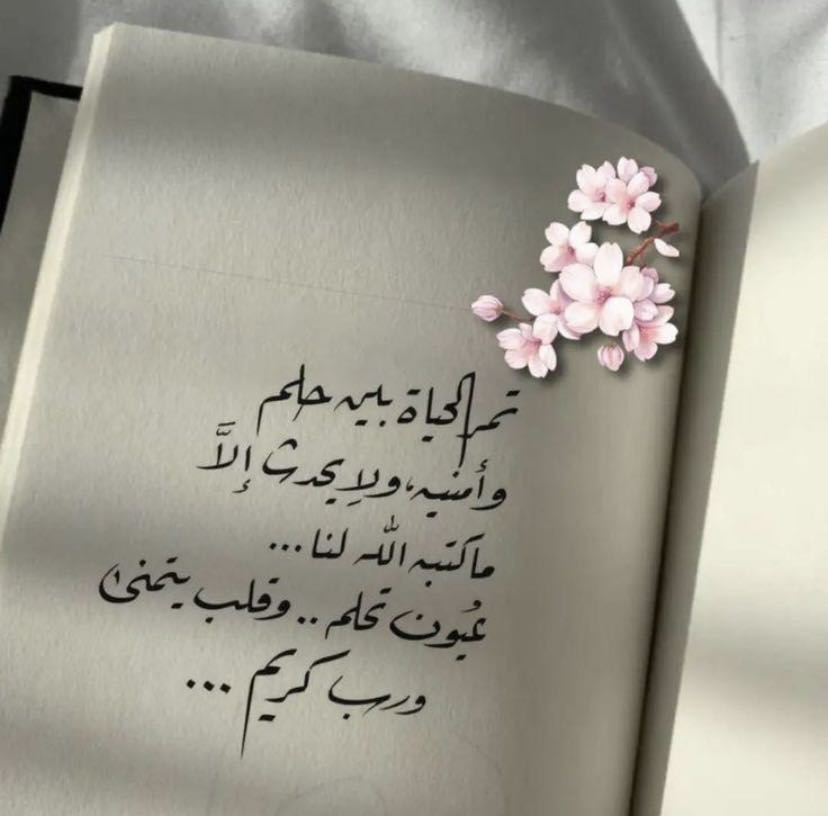 تمر الحياة بين حلم
وأمنيه، ولا يحدث إلاَّ
ماكتبه الله لنا...
عُيون تحلم .. وقلب يتمنى
ورب كريم ...